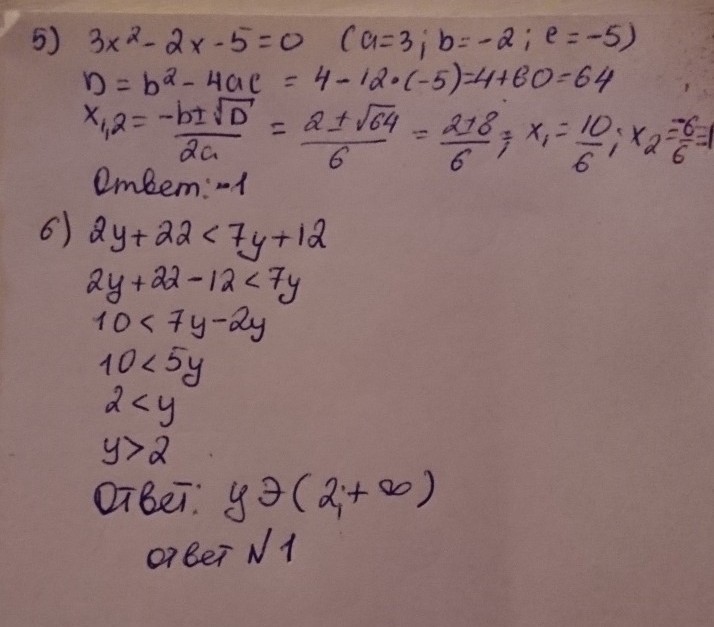 5) 3x² - 2x - 5 = 0 (a=3; b=-2; c=-5)
D = b² - 4ac = 4 - 12·(-5)=4+60=64
x₁,₂ = (-b±√D)/2a = (2±√64)/6 = (2±8)/6; x₁ = 10/6; x₂ = -6/6 = 1
Ответ: -1
6) 2y + 22 < 7y + 12
2y + 22 - 12 < 7y
10 < 7y - 2y
10 < 5y
2 < y
y > 2
Ответ: y Э (2; + ∞)
ответ N 1